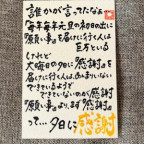 誰かが言ってたなぁ
毎年毎年元旦の初日の出に
『願い事』を届けに行く人は
巨万といる
けれど
大晦日の夕日に『感謝』を
届けに行く人はあんまりいない
できているようで
できていないのが『感謝』
『願い事』より、まず『感謝』
って…夕日に感謝